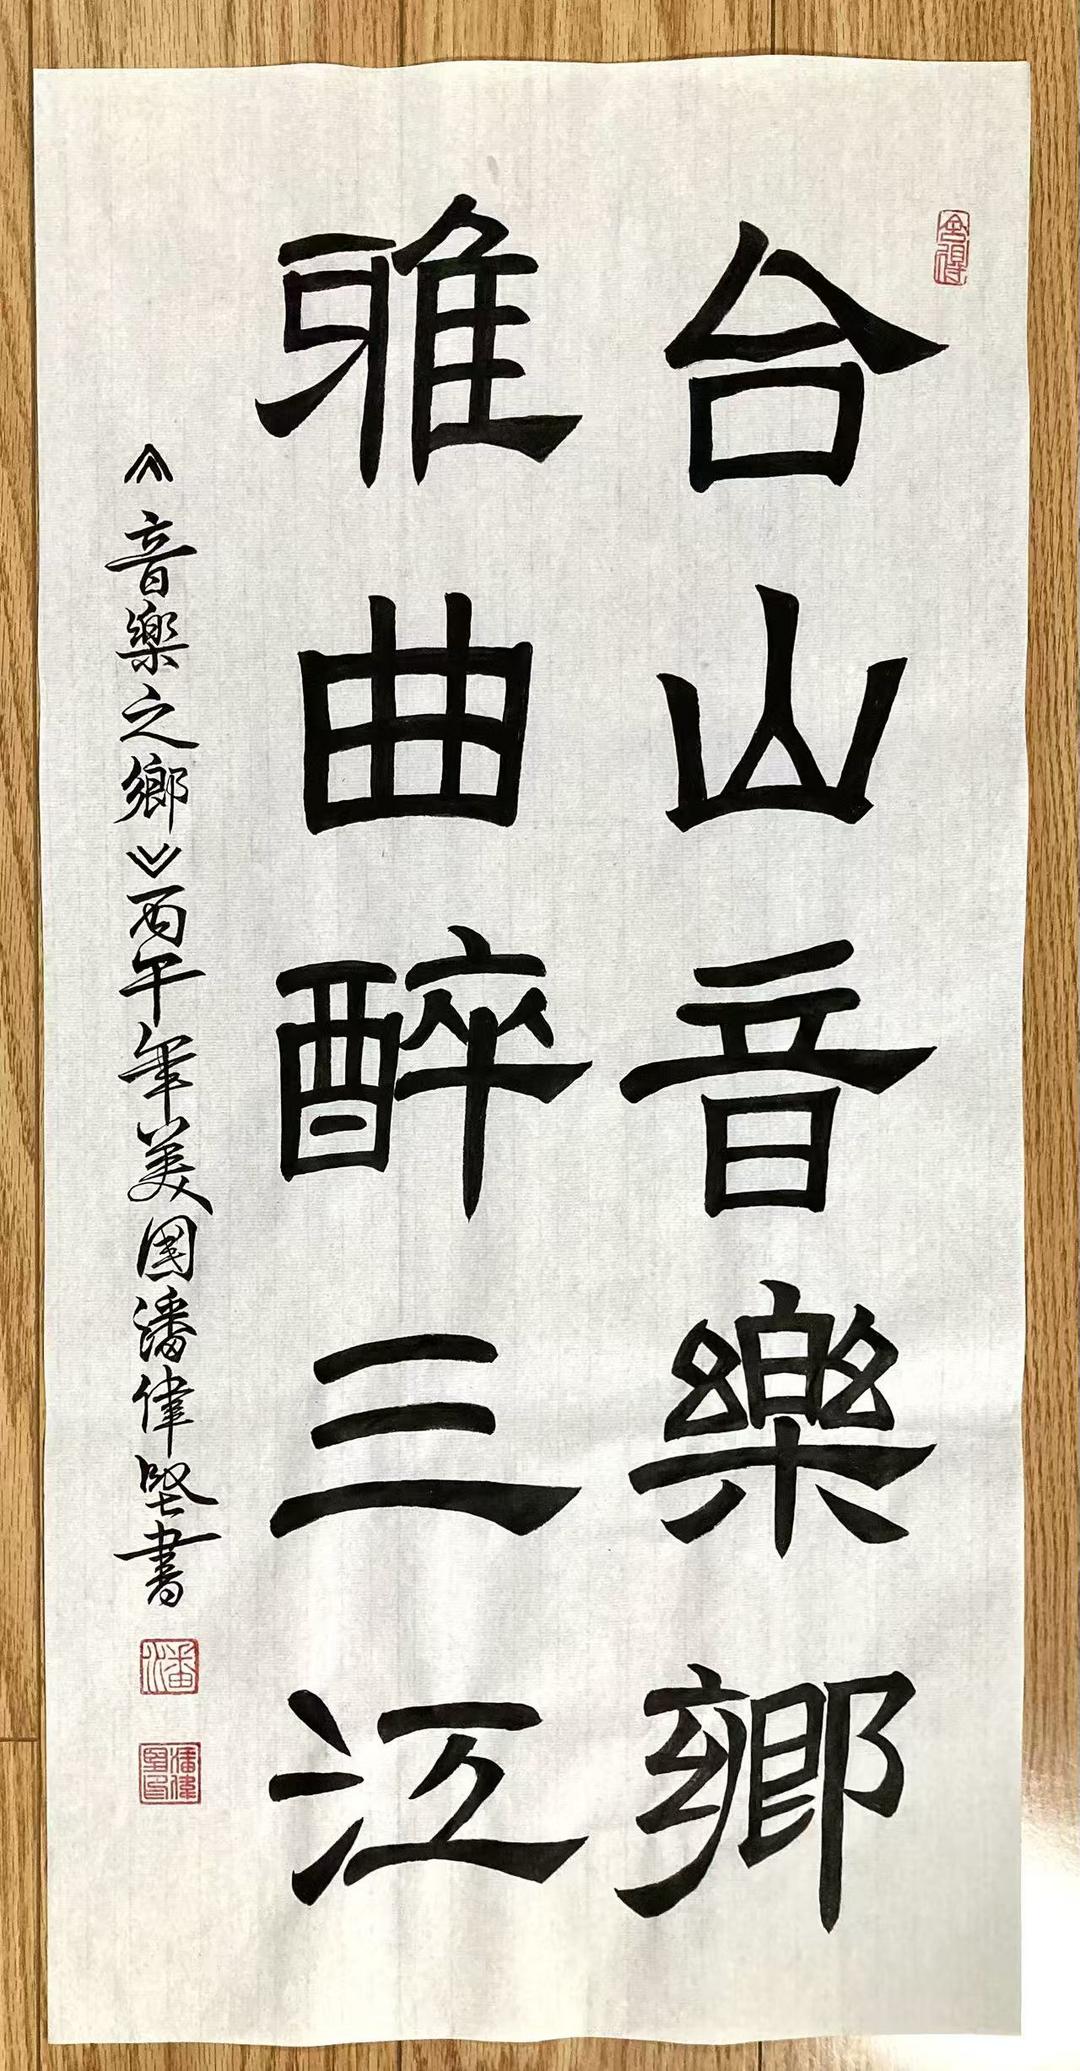 台山音樂鄉
雅曲醉三江
《音樂之鄉》丙午年美国潘偉堅書
舍得
潘